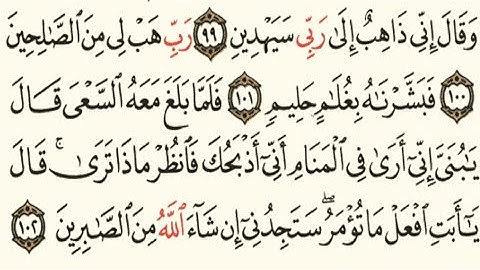 وَقَالَ إِنِّي ذَاهِبٌ إِلَىٰ رَبِّي سَيَهْدِينِ ٩٩ رَبِّ هَبْ لِي مِنَ ٱلصَّٰلِحِينَ
١٠٠ فَبَشَّرْنَٰهُ بِغُلَٰمٍ حَلِيمٍ ١٠١ فَلَمَّا بَلَغَ مَعَهُ ٱلسَّعْىَ قَالَ
يَٰبُنَىَّ إِنِّىٓ أَرَىٰ فِى ٱلْمَنَامِ أَنِّىٓ أَذْبَحُكَ فَٱنظُرْ مَاذَا تَرَىٰ ۚ قَالَ
يَٰٓأَبَتِ ٱفْعَلْ مَا تُؤْمَرُ ۖ سَتَجِدُنِىٓ إِن شَآءَ ٱللَّهُ مِنَ ٱلصَّٰبِرِينَ ١٠٢